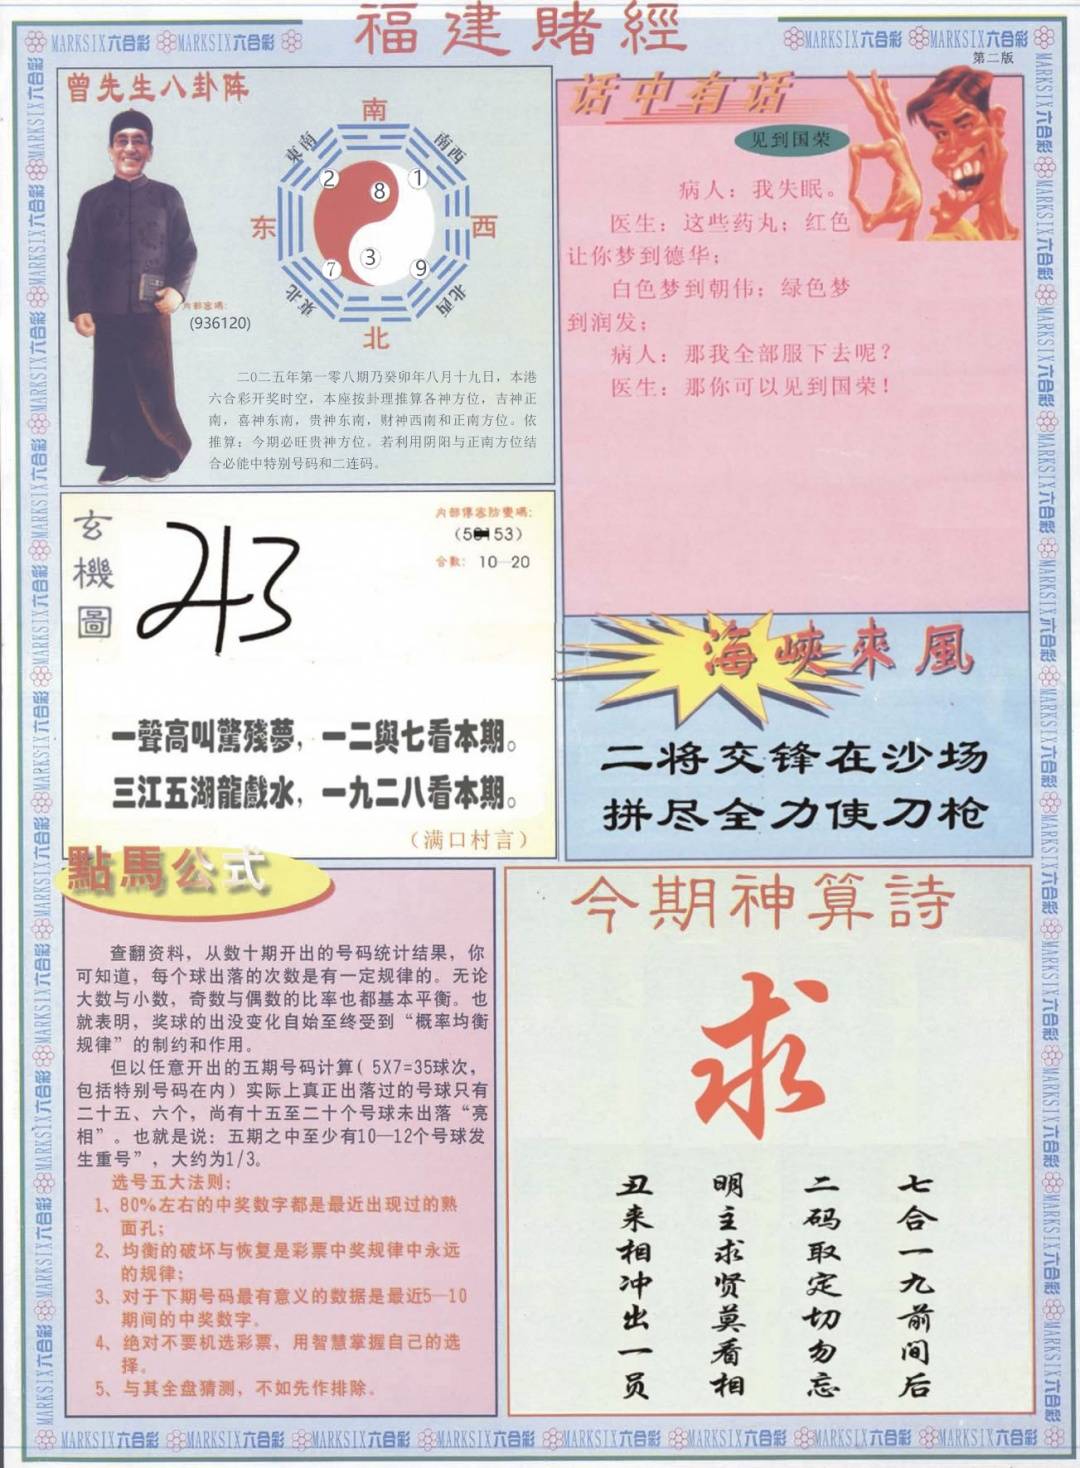 福建賭經
MARKSIX六合彩 MARKSIX六合彩
MARKSIX六合彩 MARKSIX六合彩
第二版
曾先生八卦阵
南
東南
南西
2
8
1
东
西
7
3
9
東北
北西
北
内部密碼:
(936120)
二0二五年第一零八期乃癸卯年八月十九日，本港
六合彩开奖时空，本座按卦理推算各神方位，吉神正
南，喜神东南，贵神东南，财神西南和正南方位。依
推算；今期必旺贵神方位。若利用阴阳与正南方位结
合必能中特别号码和二连码。
话中有话
见到国荣
病人：我失眠。
医生：这些药丸；红色
让你梦到德华；
白色梦到朝伟；绿色梦
到润发；
病人：那我全部服下去呢？
医生：那你可以见到国荣！
玄機圖
243
内部傳密防變碼:
53)
合數: 10—20
一聲高叫驚殘夢，一二與七看本期。
三江五湖龍戲水，一九二八看本期。
（满口村言）
海峽來風
二将交锋在沙场
拼尽全力使刀枪
點馬公式
查翻资料，从数十期开出的号码统计结果，你
可知道，每个球出落的次数是有一定规律的。无论
大数与小数，奇数与偶数的比率也都基本平衡。也
就表明，奖球的出没变化自始至终受到“概率均衡
规律”的制约和作用。
但以任意开出的五期号码计算( 5X7=35球次，
包括特别号码在内）实际上真正出落过的号球只有
二十五、六个，尚有十五至二十个号球未出落“亮
相”。也就是说：五期之中至少有10—12个号球发
生重号”，大约为1/3。
选号五大法则：
1、80%左右的中奖数字都是最近出现过的熟
面孔；
2、均衡的破坏与恢复是彩票中奖规律中永远
的规律；
3、对于下期号码最有意义的数据是最近5—10
期间的中奖数字。
4、绝对不要机选彩票，用智慧掌握自己的选
择。
5、与其全盘猜测，不如先作排除。
今期神算詩
求
七合一九前间后
二码取定切勿忘
明主求贤莫看相
丑来相冲出一员
MARKSIX六合彩 MARKSIX六合彩 MARKSIX六合彩 MARKSIX六合彩 MARKSIX六合彩 MARKSIX六合彩 MARKSIX六合彩 MARKSIX六合彩